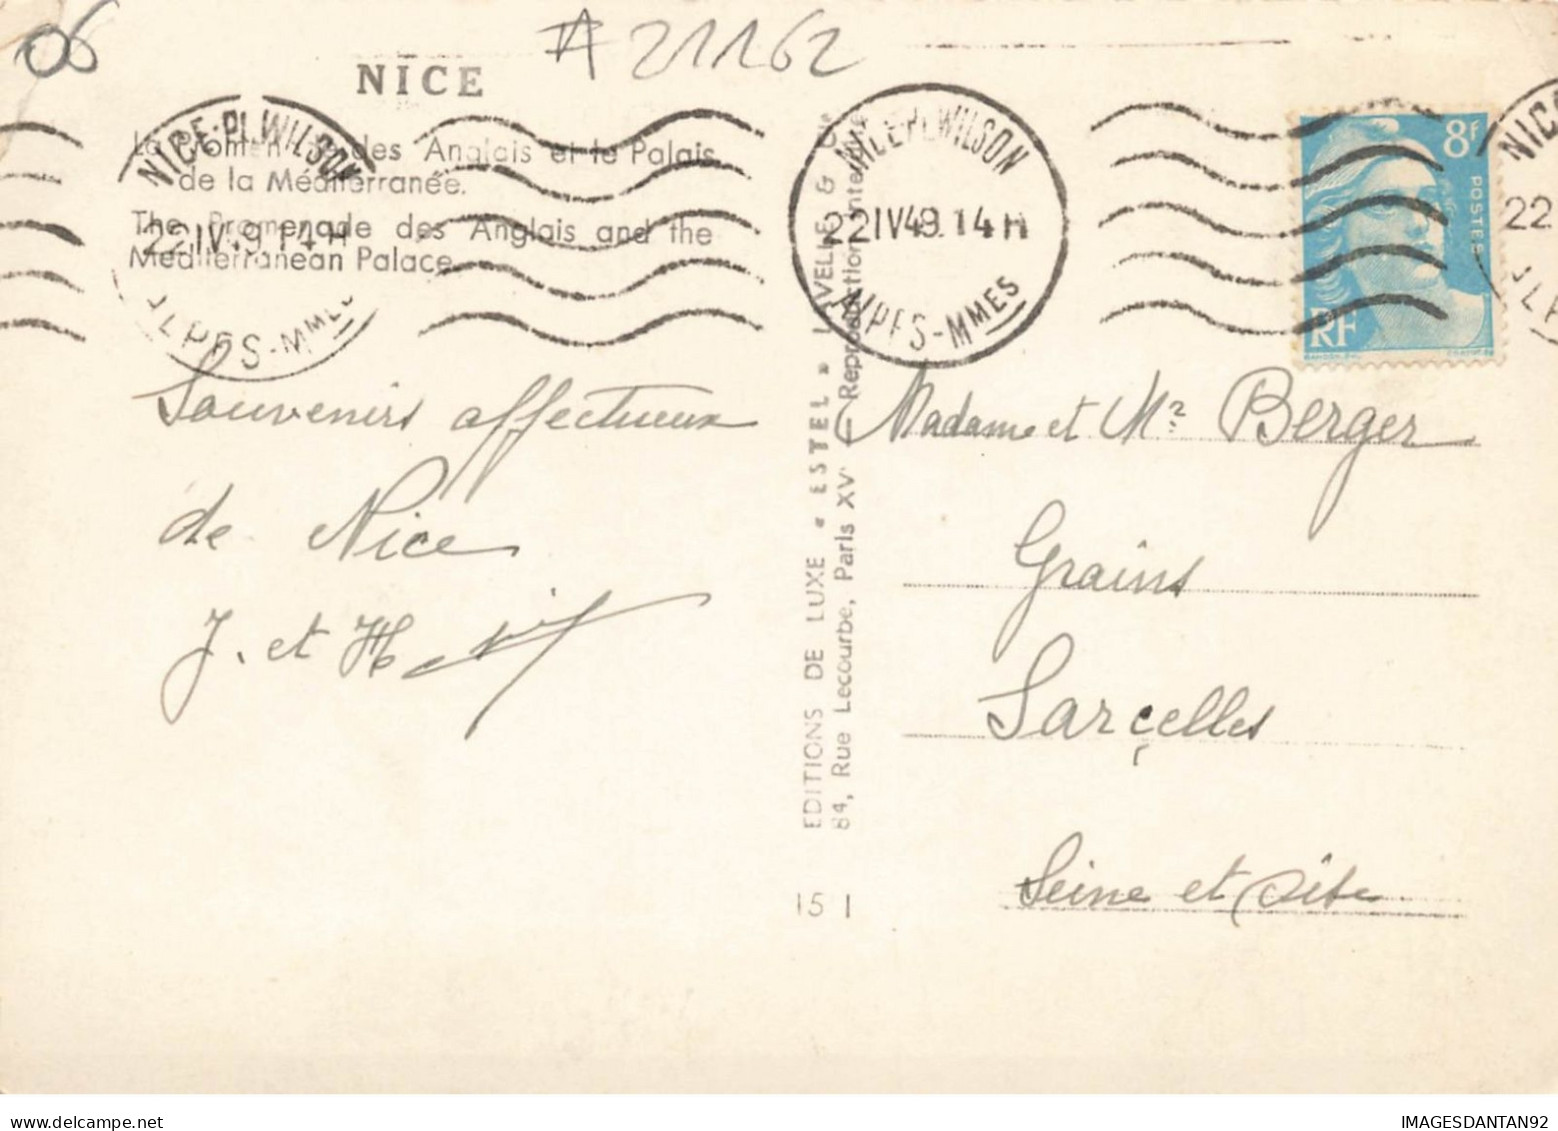 06
A 21162
NICE
La Promenade des Anglais et le Palais
de la Méditerranée.
The Promenade des Anglais and the
Mediterranean Palace.
NICE-PL.WILSON
22 IV 49. 14 H
ALPES-MMES
NICE-PL.WILSON
22 IV 49. 14 H
ALPES-MMES
NICE
22
8F
POSTES
RF
Souvenirs affectueux
de Nice
J. et H
EDITIONS DE LUXE « ESTEL » LAVELLE & Cie
84, Rue Lecourbe, Paris XV — Reproduction interdite
15 1
Madame et Mr Berger
Grains
Sarçelles
Seine et Oise
delcampe.net
IMAGESDANTAN92